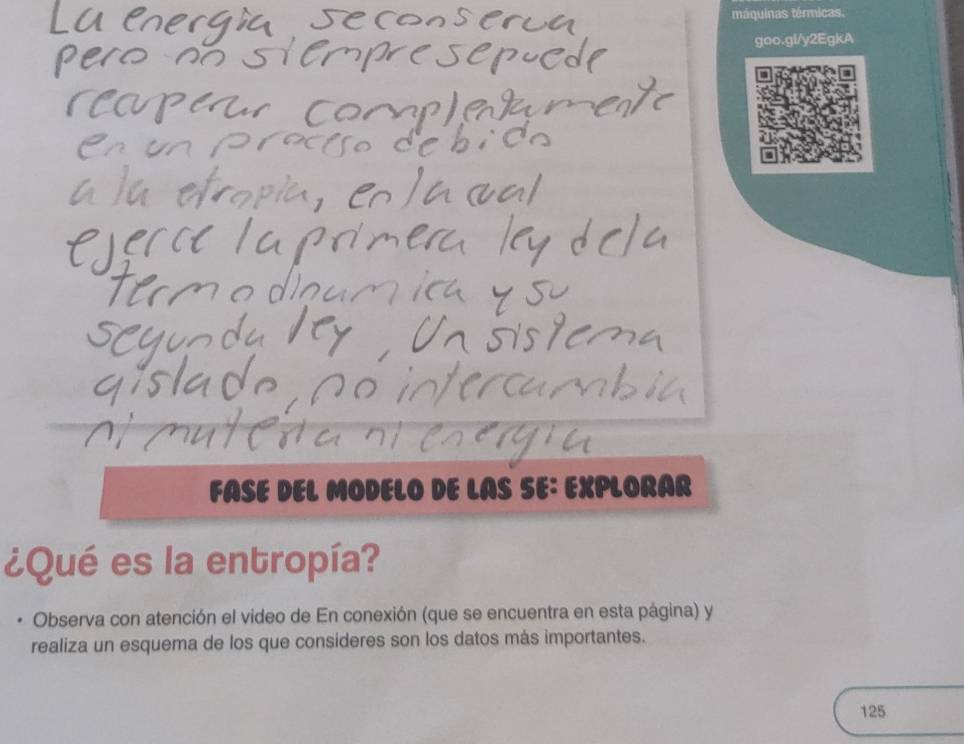 La energia se conserva
pero no siempre se puede
recuperar completamente
en un proceso debido
a la etropia, en la cual
ejerce la primera ley de la
termodinamica y su
segunda ley, Un sistema
aislado, no intercambia
ni materia ni energia
máquinas térmicas.
goo.gl/y2EgkA
FASE DEL MODELO DE LAS 5E: EXPLORAR
¿Qué es la entropía?
• Observa con atención el video de En conexión (que se encuentra en esta página) y
realiza un esquema de los que consideres son los datos más importantes.
125